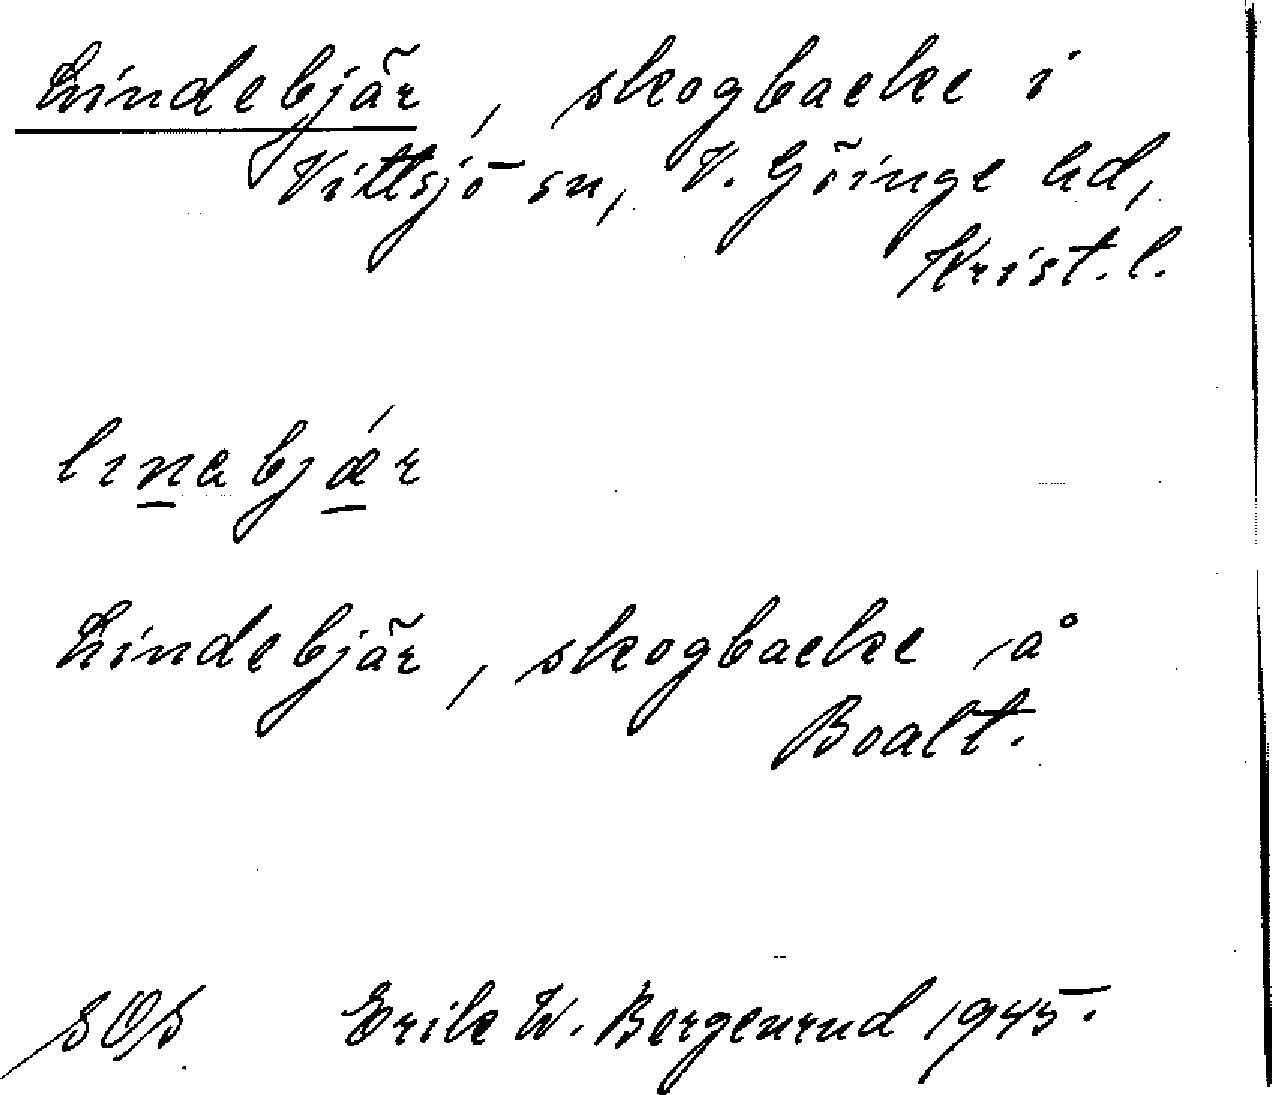 Lindebjär, skogbacke i
Vittsjö sn, V. Göinge hd,
Krist. l.
lınabjǽr
Lindebjär, skogbacke å
Boalt.
SOS Erik W. Bergenrud 1945.